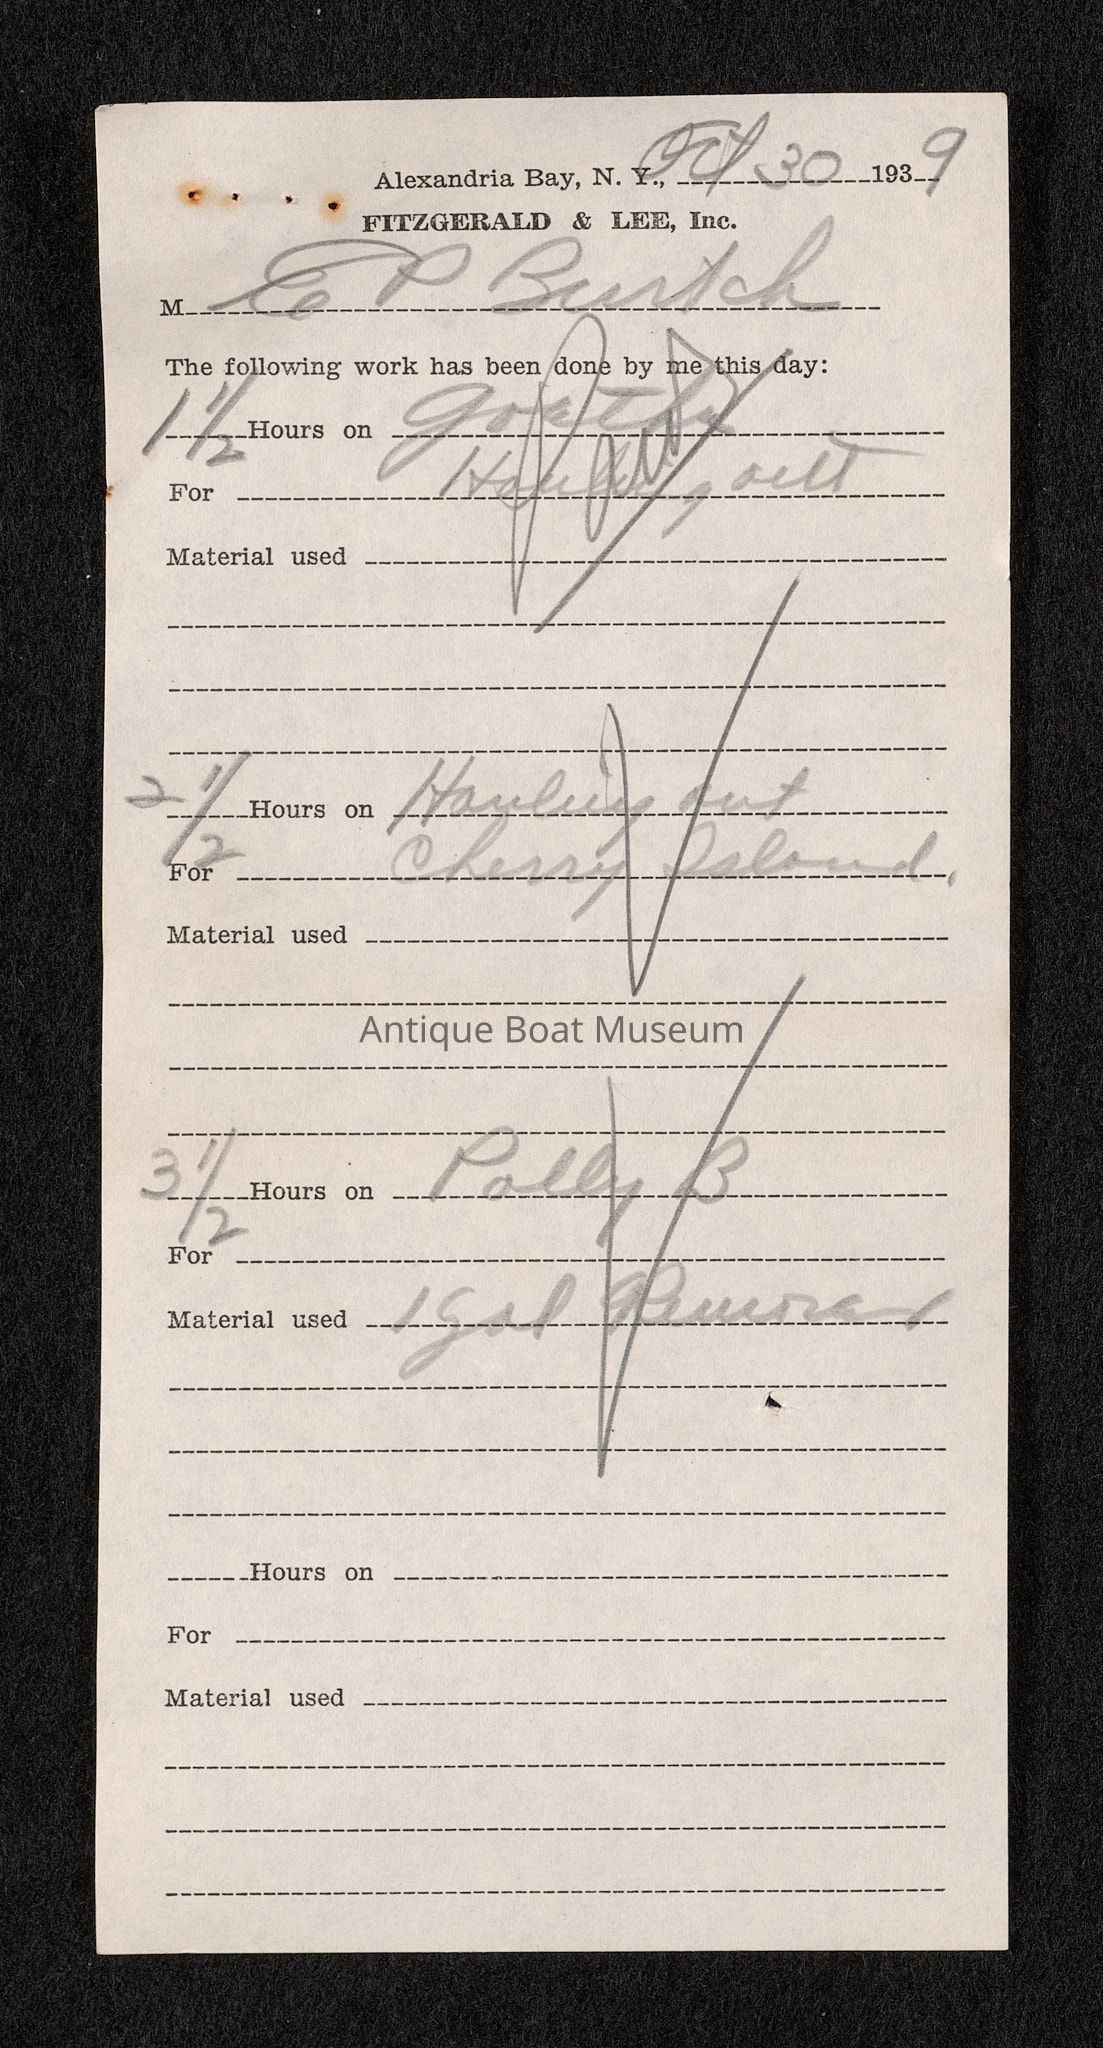 Alexandria Bay, N. Y., Oct 30 1939
FITZGERALD & LEE, Inc.
M E P Burtch
The following work has been done by me this day:
1 1/2 Hours on
For Hauling out
Material used
2 1/2 Hours on Hauling out
For Cherry Island.
Material used
Antique Boat Museum
3 1/2 Hours on Polly B
For
Material used 1 gal
Hours on
For
Material used